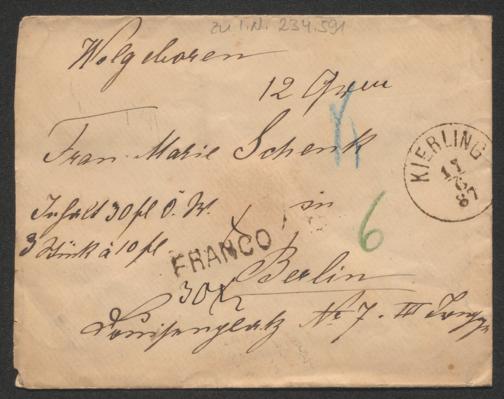 zu I.N. 234.591
Wolgeboren
12 Gram
Frau Marie Schenk
KIERLING
17
6
87
Inhalt 30 fl Ö. W. in
3 Stück à 10 fl
6
FRANCO
Berlin
30
Louisenplatz No 7. III